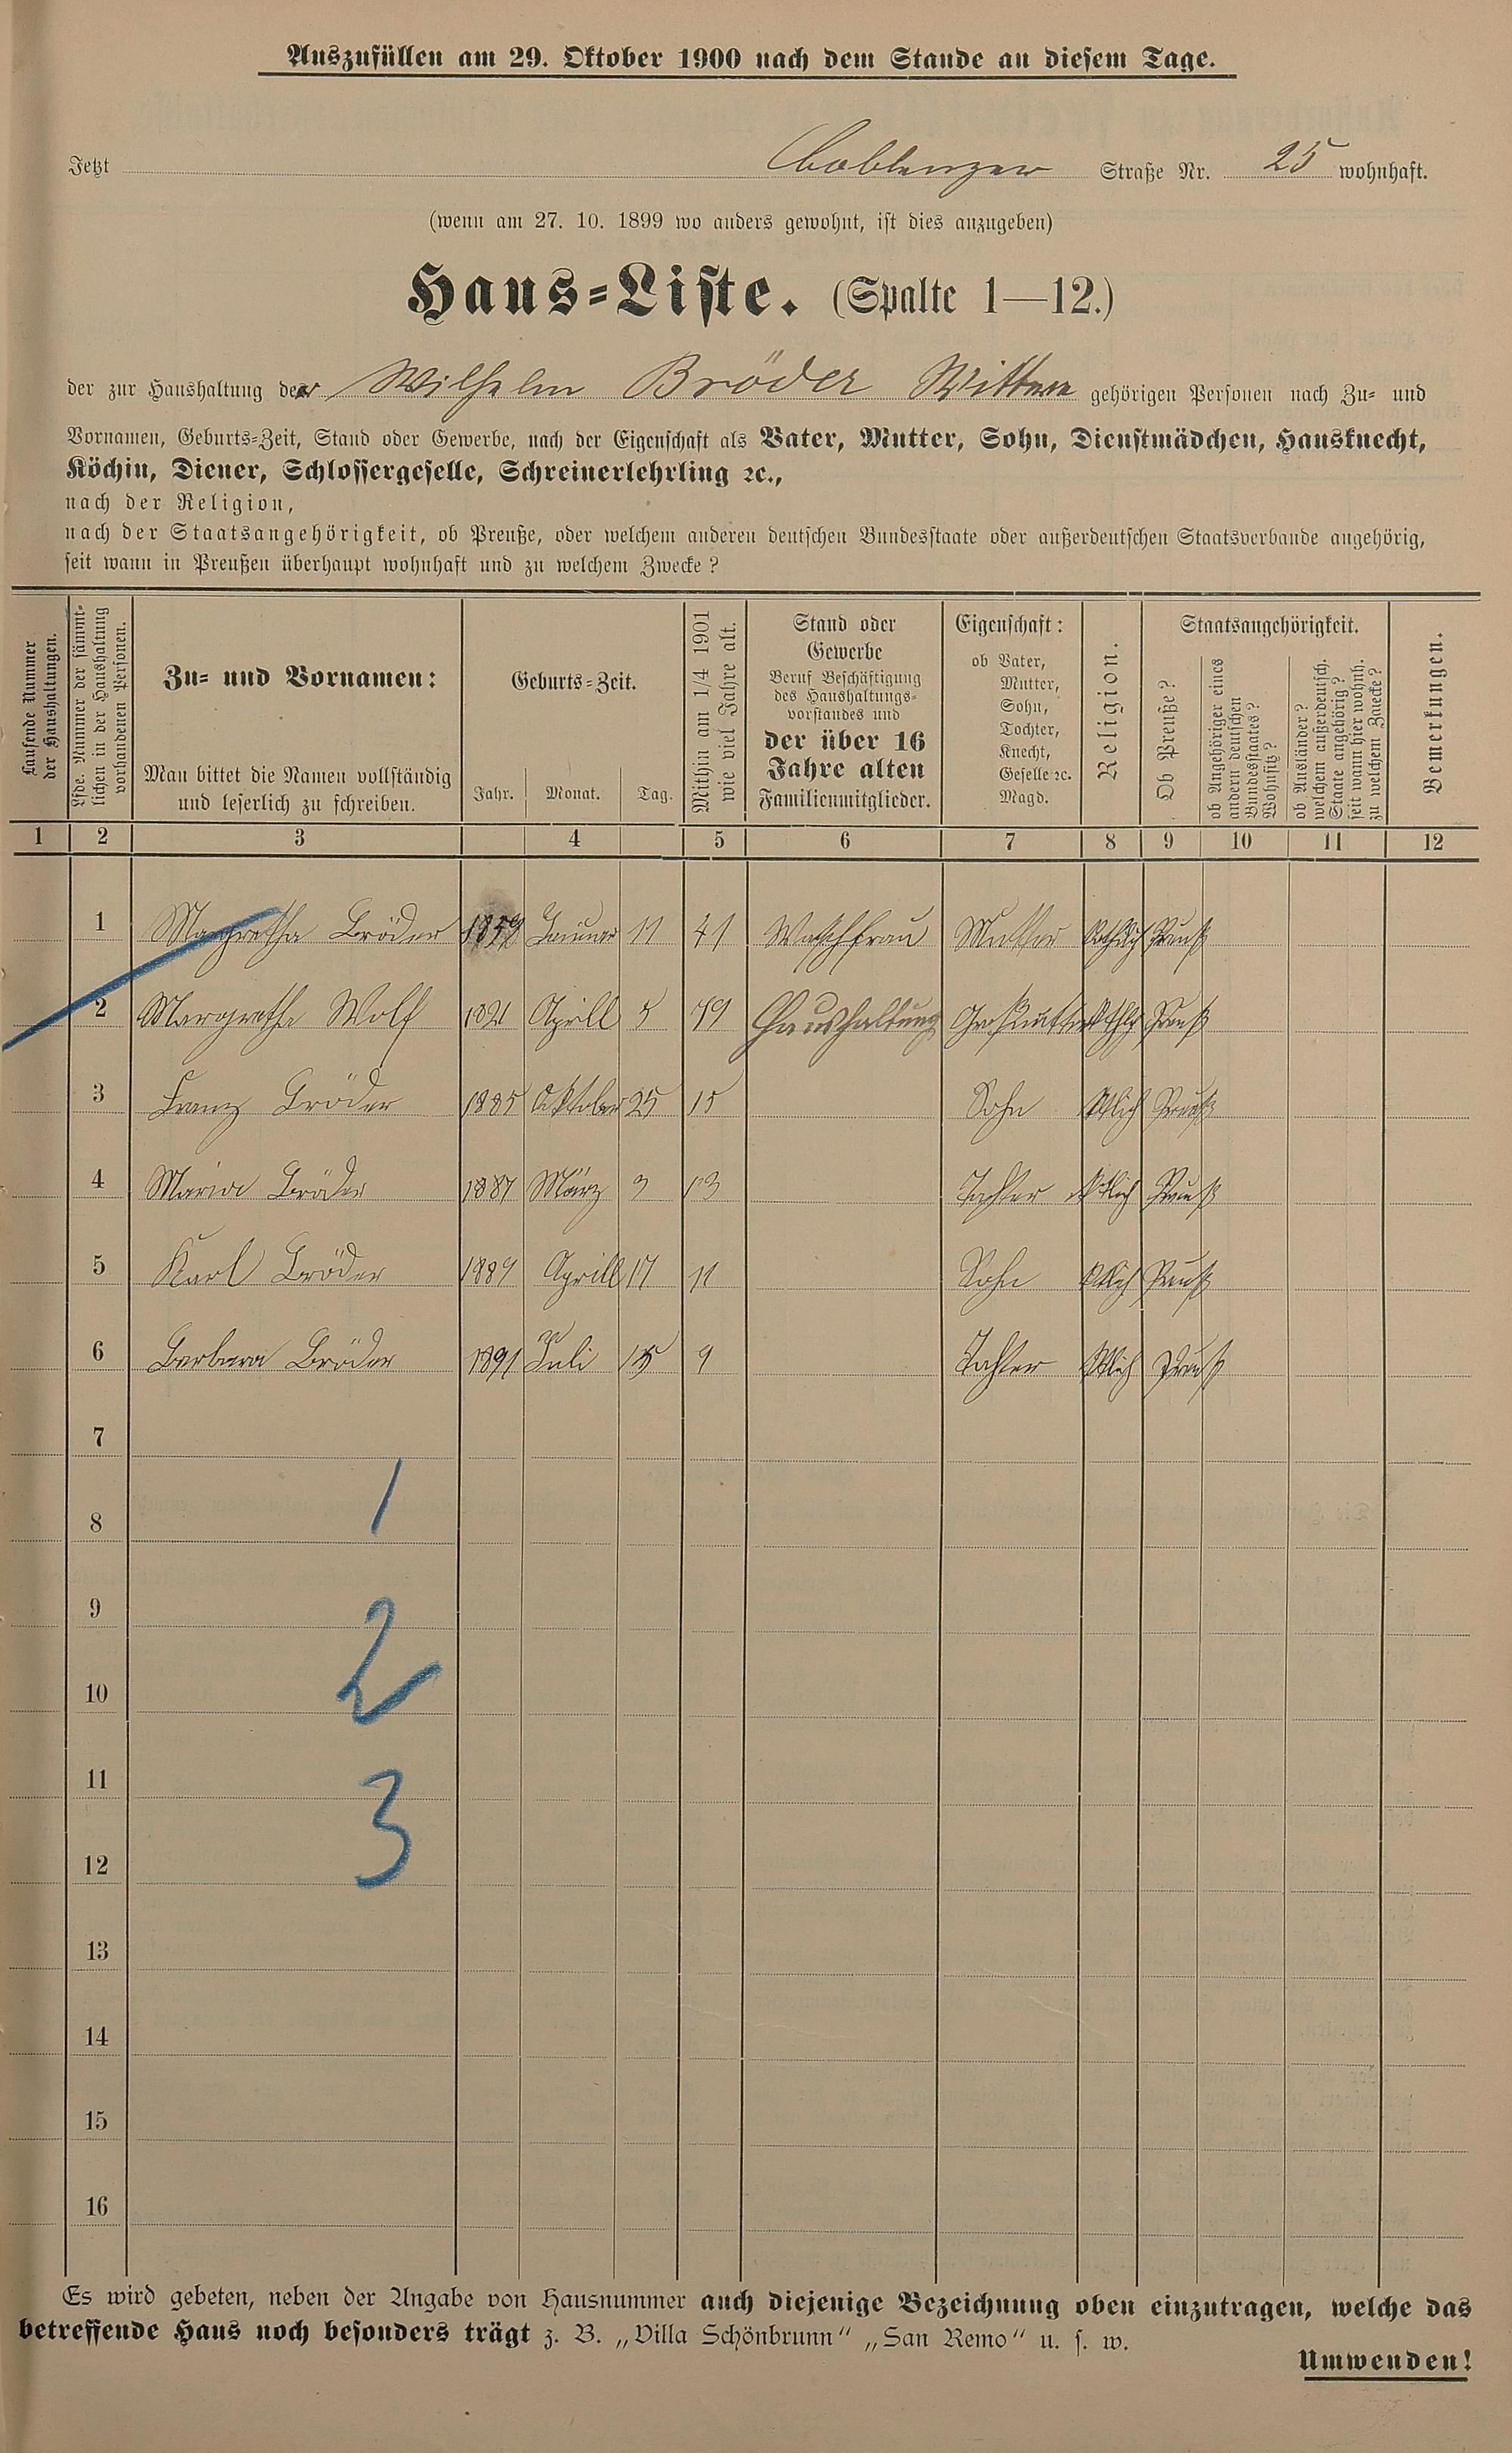 Auszufüllen am 29. Oktober 1900 nach dem Stande an diesem Tage.
Jetzt Coblenzer Straße Nr. 25 wohnhaft.
(wenn am 27. 10. 1899 wo anders gewohnt, ist dies anzugeben)
Haus=Liste. (Spalte 1—12.)
der zur Haushaltung der Wilhelm Bröder Wittwe gehörigen Personen nach Zu= und
Vornamen, Geburts=Zeit, Stand oder Gewerbe, nach der Eigenschaft als Vater, Mutter, Sohn, Dienstmädchen, Hausknecht,
Köchin, Diener, Schlossergeselle, Schreinerlehrling ꝛc.,
nach der Religion,
nach der Staatsangehörigkeit, ob Preuße, oder welchem anderen deutschen Bundesstaate oder außerdeutschen Staatsverbande angehörig,
seit wann in Preußen überhaupt wohnhaft und zu welchem Zwecke?
Laufende Nummer
der Haushaltungen.
Lfde. Nummer der sämmt-
lichen in der Haushaltung
vorhandenen Personen.
Zu= und Vornamen:
Man bittet die Namen vollständig
und leserlich zu schreiben.
Geburts=Zeit.
Jahr. Monat. Tag.
Mithin am 1/4 1901
wie viel Jahre alt.
Stand oder
Gewerbe
Beruf Beschäftigung
des Haushaltungs-
vorstandes und
der über 16
Jahre alten
Familienmitglieder.
Eigenschaft:
ob Vater,
Mutter,
Sohn,
Tochter,
Knecht,
Geselle ꝛc.
Magd.
Religion.
Staatsangehörigkeit.
Ob Preuße?
ob Angehöriger eines
andern deutschen
Bundesstaates?
Wohnsitz?
ob Ausländer?
welchem außerdeutsch.
Staate angehörig?
seit wann hier wohnh.
zu welchem Zwecke?
Bemerkungen.
1 2 3 4 5 6 7 8 9 10 11 12
1 Margretha Bröder 1859 Januar 11 41 Waschfrau Mutter Preuß
2 Margretha Wolf 1821 Aprill 5 79 Haushaltung Großmutter Preuß
3 Franz Bröder 1885 Oktober 25 15 Sohn Ktlich Preuß
4 Maria Bröder 1887 März 3 13 Tochter Ktlich Preuß
5 Karl Bröder 1889 Aprill 17 11 Sohn Ktlich Preuß
6 Barbara Bröder 1891 Juli 15 9 Tochter Ktlich Preuß
7
1
8
9
2
10
11
3
12
13
14
15
16
Es wird gebeten, neben der Angabe von Hausnummer auch diejenige Bezeichnung oben einzutragen, welche das
betreffende Haus noch besonders trägt z. B. „Villa Schönbrunn“ „San Remo“ u. s. w.
Umwenden!